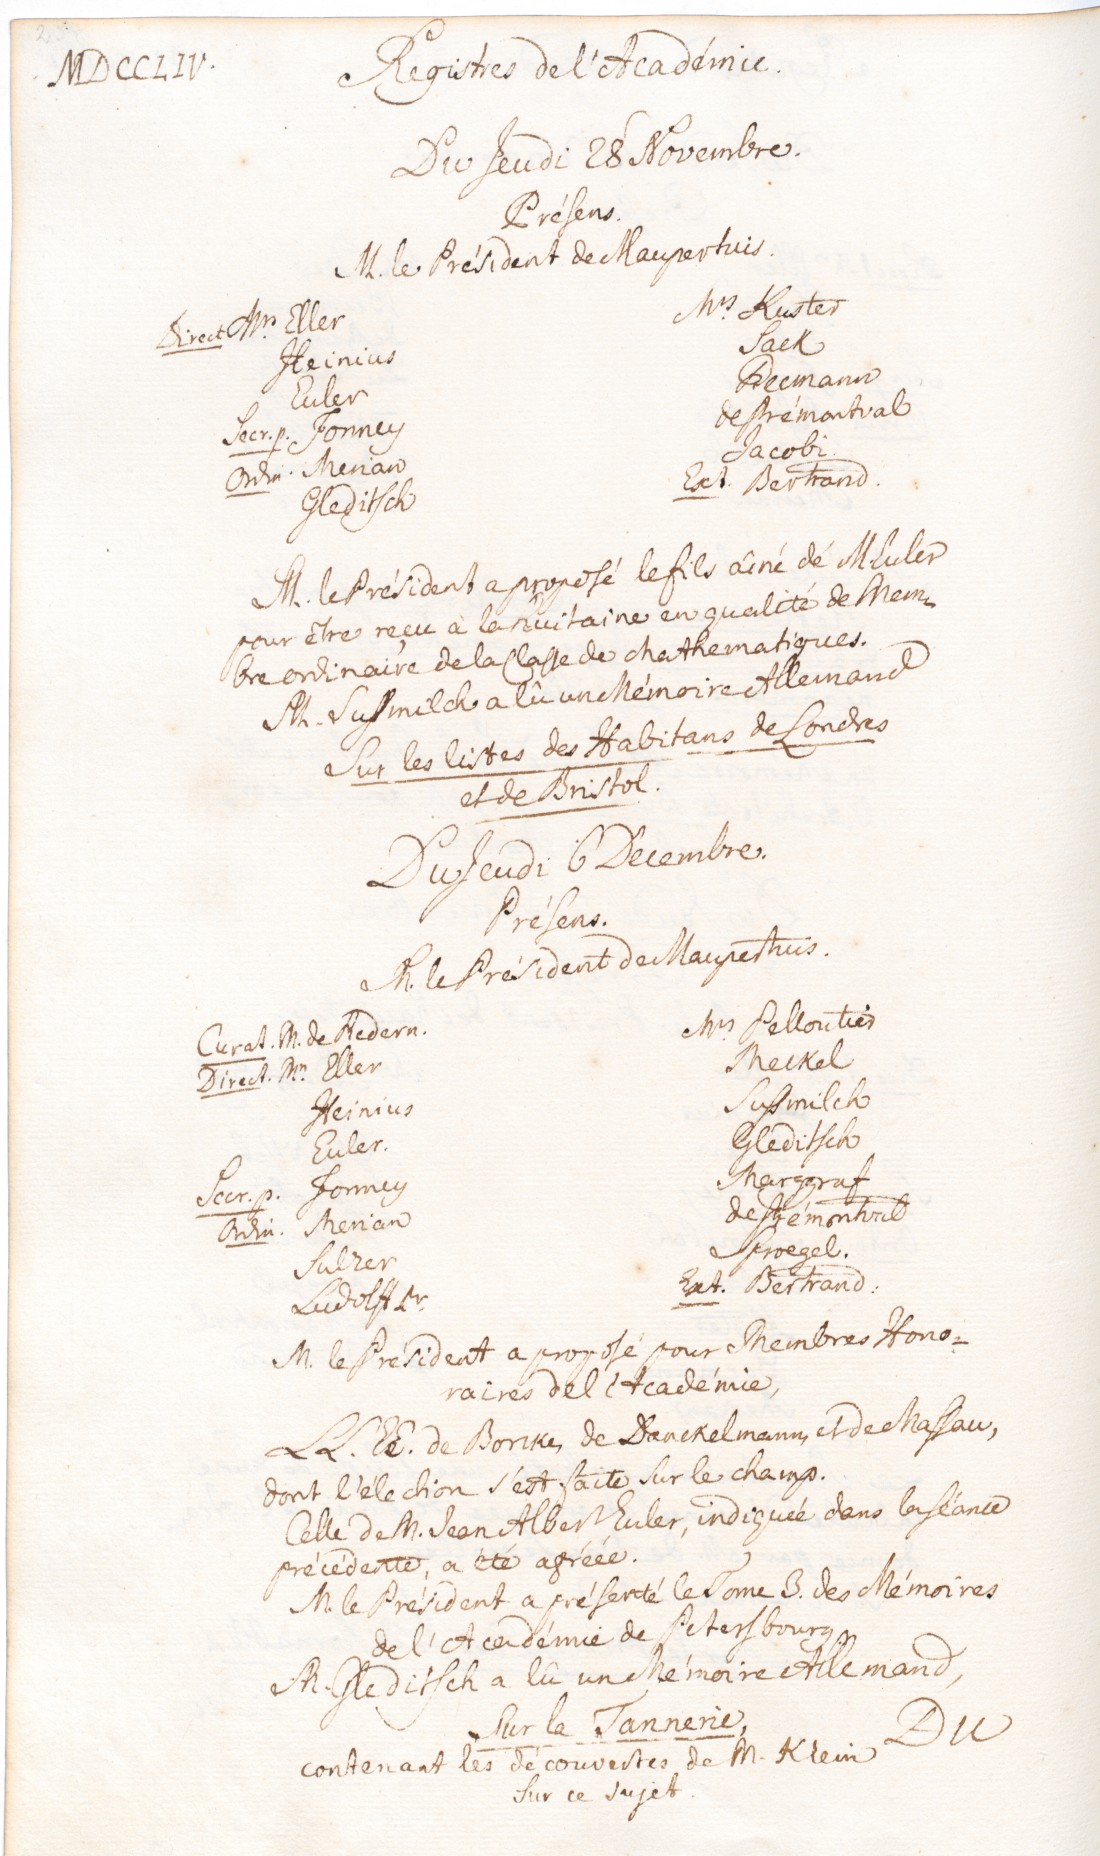 MDCCLIV.
Registres de l'Académie.
Du Jeudi 28 Novembre.
Présens.
M. le Président de Maupertuis.
Direct. Mrs. Eller
Heinius
Euler
Secr. p. Formey
Ordin. Merian
Gleditsch
Mrs. Kuster
Sack
Becmann
de Prémontval
Jacobi.
Ext. Bertrand.
M. le Président a proposé le fils aîné de M. Euler
pour être reçu à la huitaine en qualité de Mem-
bre ordinaire de la Classe de Mathematiques.
M. Sussmilch a lû un Mémoire Allemand
Sur les listes des Habitans de Londres
et de Bristol.
Du Jeudi 6 Decembre.
Présens.
M. le Président de Maupertuis.
Curat. M. de Redern.
Direct. Mrs. Eller
Heinius
Euler.
Secr. p. Formey
Ordin. Merian
Sulzer
Ludolff Pr.
Mrs Pelloutier
Meckel
Sussmilch
Gleditsch
Marggraf
de Prémontval
Sproegel.
Ext. Bertrand.
M. le Président a proposé pour Membres Hono-
raires de l'Académie,
LL. EE. de Borcke, de Danckelmann, et de Massau,
dont l'élection s'est faite sur le champ.
Celle de M. Jean Albert Euler, indiquée dans la séance
précédente, a été agréée.
M. le Président a présenté le Tome 3. des Mémoires
de l'Académie de Petersbourg
M. Gleditsch a lû un Mémoire Allemand,
Sur la Tannerie,
contenant les découvertes de M. Klein
sur ce sujet.
Du